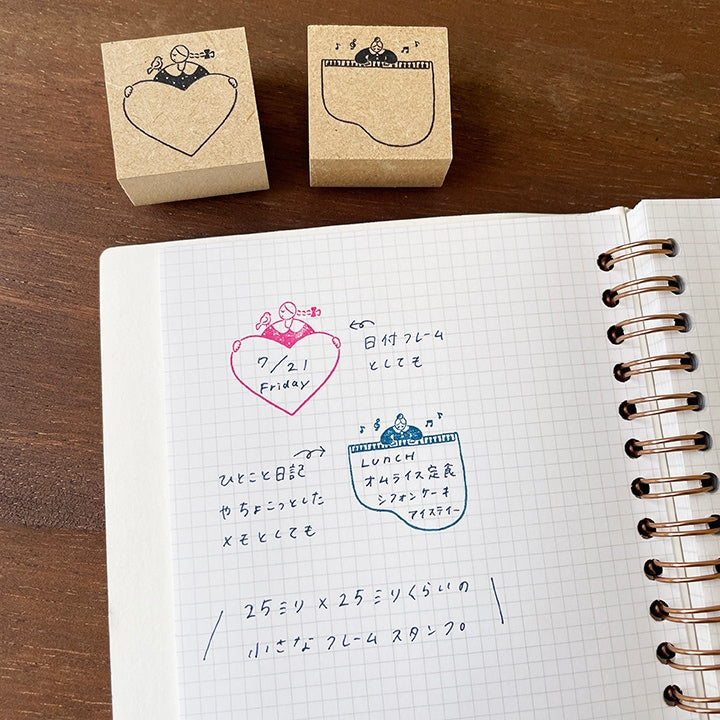 7/21
Friday
日付フレーム
としても
LUNCH
オムライス定食
シフォンケーキ
アイスティー
ひとこと日記
やちょこっとした
メモとしても
25ミリ×25ミリくらいの
小さなフレームスタンプ。